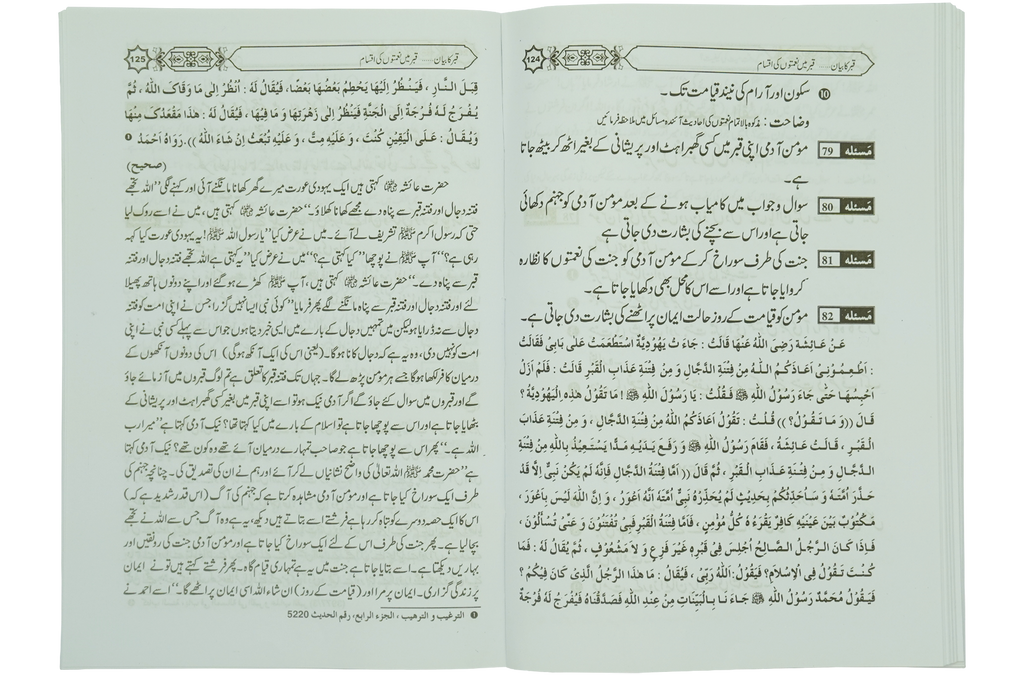 124
قبر کا بیان ...... قبر میں نعمتوں کی اقسام
⓾ سکون اور آرام کی نیند قیامت تک۔
وضاحت : مذکورہ بالا تمام نعمتوں کی احادیث آئندہ مسائل میں ملاحظہ فرمائیں
مَسئلہ 79 مؤمن آدمی اپنی قبر میں کسی گھبراہٹ اور پریشانی کے بغیر اٹھ کر بیٹھ جاتا
ہے۔
مَسئلہ 80 سوال و جواب میں کامیاب ہونے کے بعد مؤمن آدمی کو جہنم دکھائی
جاتی ہے اور اس سے بچنے کی بشارت دی جاتی ہے
مَسئلہ 81 جنت کی طرف سوراخ کر کے مؤمن آدمی کو جنت کی نعمتوں کا نظارہ
کروایا جاتا ہے اور اسے اس کا محل بھی دکھایا جاتا ہے۔
مَسئلہ 82 مؤمن کو قیامت کے روز حالت ایمان پر اٹھنے کی بشارت دی جاتی ہے۔
عَنْ عَائِشَةَ رَضِیَ اللّٰهُ عَنْهَا قَالَتْ : جَاءَتْ یَهُوْدِیَّةٌ اسْتَطْعَمَتْ عَلٰی بَابِیْ فَقَالَتْ
: اَطْعِمُوْنِیْ اَعَاذَکُمُ اللّٰهُ مِنْ فِتْنَةِ الدَّجَّالِ وَ مِنْ فِتْنَةِ عَذَابِ الْقَبْرِ قَالَتْ : فَلَمْ اَزَلْ
اَحْبِسُهَا حَتّٰی جَاءَ رَسُوْلُ اللّٰهِ ﷺ فَقُلْتُ : یَا رَسُوْلَ اللّٰهِ ! مَا تَقُوْلُ هٰذِهِ الْیَهُوْدِیَّةُ ؟
قَالَ ((وَ مَا تَقُوْلُ؟)) قُلْتُ : تَقُوْلُ اَعَاذَکُمُ اللّٰهُ مِنْ فِتْنَةِ الدَّجَّالِ ، وَ مِنْ فِتْنَةِ عَذَابِ
الْقَبْرِ ، قَالَتْ عَائِشَةُ ، فَقَامَ رَسُوْلُ اللّٰهِ ﷺ وَ رَفَعَ یَدَیْهِ مَدًّا یَسْتَعِیْذُ بِاللّٰهِ مِنْ فِتْنَةِ
الدَّجَّالِ وَ مِنْ فِتْنَةِ عَذَابِ الْقَبْرِ ، ثُمَّ قَالَ (( اَمَّا فِتْنَةُ الدَّجَّالِ فَاِنَّهُ لَمْ یَکُنْ نَبِیٌّ اِلَّا قَدْ
حَذَّرَ اُمَّتَهُ وَ سَاُحَدِّثُکُمْ بِحَدِیْثٍ لَمْ یُحَذِّرْهُ نَبِیٌّ اُمَّتَهُ اَنَّهُ اَعْوَرُ ، وَ اِنَّ اللّٰهَ لَیْسَ بِاَعْوَرَ ،
مَکْتُوْبٌ بَیْنَ عَیْنَیْهِ کَافِرٌ یَقْرَءُهُ کُلُّ مُؤْمِنٍ ، فَاَمَّا فِتْنَةُ الْقَبْرِ فَبِیْ تُفْتَنُوْنَ وَ عَنِّیْ تُسْأَلُوْنَ ،
فَاِذَا کَانَ الرَّجُلُ الصَّالِحُ اُجْلِسَ فِیْ قَبْرِهِ غَیْرَ فَزِعٍ وَ لاَ مَشْعُوْفٍ ، ثُمَّ یُقَالُ لَهُ : فَمَا
کُنْتَ تَقُوْلُ فِی الْاِسْلاَمِ؟ فَیَقُوْلُ: اَللّٰهُ رَبِّیْ ، فَیُقَالُ : مَا هٰذَا الرَّجُلُ الَّذِیْ کَانَ فِیْکُمْ ؟
فَیَقُوْلُ مُحَمَّدٌ رَسُوْلُ اللّٰهِ ﷺ جَاءَ نَا بِالْبَیِّنَاتِ مِنْ عِنْدِ اللّٰهِ فَصَدَّقْنَاهُ فَیُفْرَجُ لَهُ فُرْجَةٌ
125
قبر کا بیان ...... قبر میں نعمتوں کی اقسام
قِبَلَ النَّارِ ، فَیَنْظُرُ اِلَیْهَا یَحْطِمُ بَعْضُهَا بَعْضًا، فَیُقَالُ لَهُ : اُنْظُرْ اِلٰی مَا وَقَاکَ اللّٰهُ ، ثُمَّ
یُفْرَجُ لَهُ فُرْجَةٌ اِلَی الْجَنَّةِ فَیَنْظُرُ اِلٰی زَهْرَتِهَا وَ مَا فِیْهَا ، فَیُقَالُ لَهُ : هٰذَا مَقْعَدُکَ مِنْهَا
وَیُقَالُ : عَلَی الْیَقِیْنِ کُنْتَ ، وَ عَلَیْهِ مِتَّ ، وَ عَلَیْهِ تُبْعَثُ اِنْ شَاءَ اللّٰهُ )). رَوَاهُ اَحْمَدُ ❶
(صحیح)
حضرت عائشہ ؓ کہتی ہیں ایک یہودی عورت میرے گھر کھانا مانگنے آئی اور کہنے لگی ”اللہ تجھے
فتنہ دجال اور فتنہ قبر سے پناہ دے مجھے کھانا کھلاؤ۔“ حضرت عائشہ ؓ کہتی ہیں، میں نے اسے روک لیا
حتی کہ رسول اکرم ﷺ تشریف لے آئے۔ میں نے عرض کیا ”یا رسول اللہ ﷺ! یہ یہودی عورت کیا کہہ
رہی ہے؟“ آپ ﷺ نے پوچھا ”کیا کہتی ہے؟“ میں نے عرض کیا ”یہ کہتی ہے اللہ تجھے فتنہ دجال اور فتنہ
قبر سے پناہ دے۔“ حضرت عائشہ ؓ کہتی ہیں، آپ ﷺ کھڑے ہو گئے اور اپنے دونوں ہاتھ پھیلا
لئے اور فتنہ دجال اور فتنہ قبر سے پناہ مانگنے لگے پھر فرمایا ”کوئی نبی ایسا نہیں گزرا جس نے اپنی امت کو فتنہ
دجال سے نہ ڈرایا ہو لیکن میں تمہیں دجال کے بارے میں ایسی خبر دیتا ہوں جو اس سے پہلے کسی نبی نے اپنی
امت کو نہیں دی، وہ یہ ہے کہ دجال کانا ہوگا۔ (یعنی اس کی ایک آنکھ ہوگی) اس کی دونوں آنکھوں کے
درمیان کافر لکھا ہوگا جسے ہر مؤمن پڑھ لے گا۔ جہاں تک فتنہ قبر کا تعلق ہے تم لوگ قبروں میں آزمائے جاؤ
گے اور قبروں میں سوال کئے جاؤ گے اگر آدمی نیک ہو تو اسے اپنی قبر میں بغیر کسی گھبراہٹ اور پریشانی کے
بٹھایا جاتا ہے اور اس سے پوچھا جاتا ہے تو اسلام کے بارے میں کیا کہتا تھا؟ نیک آدمی کہتا ہے ”میرا رب
اللہ ہے۔“ پھر اس سے پوچھا جاتا ہے جو صاحب تمہارے درمیان آئے تھے وہ کون تھے؟ نیک آدمی کہتا
ہے ”حضرت محمد ﷺ اللہ تعالیٰ کی واضح نشانیاں لے کر آئے اور ہم نے ان کی تصدیق کی۔ چنانچہ جہنم کی
طرف ایک سوراخ کیا جاتا ہے اور مؤمن آدمی مشاہدہ کرتا ہے کہ جہنم کی آگ (اس قدر شدید ہے کہ)
اس کا ایک حصہ دوسرے کو تباہ کر رہا ہے فرشتے اسے بتاتے ہیں دیکھ، یہ ہے وہ آگ جس سے اللہ نے تجھے
بچالیا ہے۔ پھر جنت کی طرف اس کے لئے ایک سوراخ کیا جاتا ہے اور مؤمن آدمی جنت کی رونقیں اور
بہاریں دیکھتا ہے۔ اسے بتایا جاتا ہے جنت میں یہ ہے تمہاری قیام گاہ۔ پھر فرشتے کہتے ہیں تو نے ایمان
پر زندگی گزاری۔ ایمان پر مرا اور (قیامت کے روز) ان شاء اللہ اسی ایمان پر اٹھے گا۔“ اسے احمد نے
❶ الترغیب و الترهیب ، الجزء الرابع، رقم الحدیث 5220